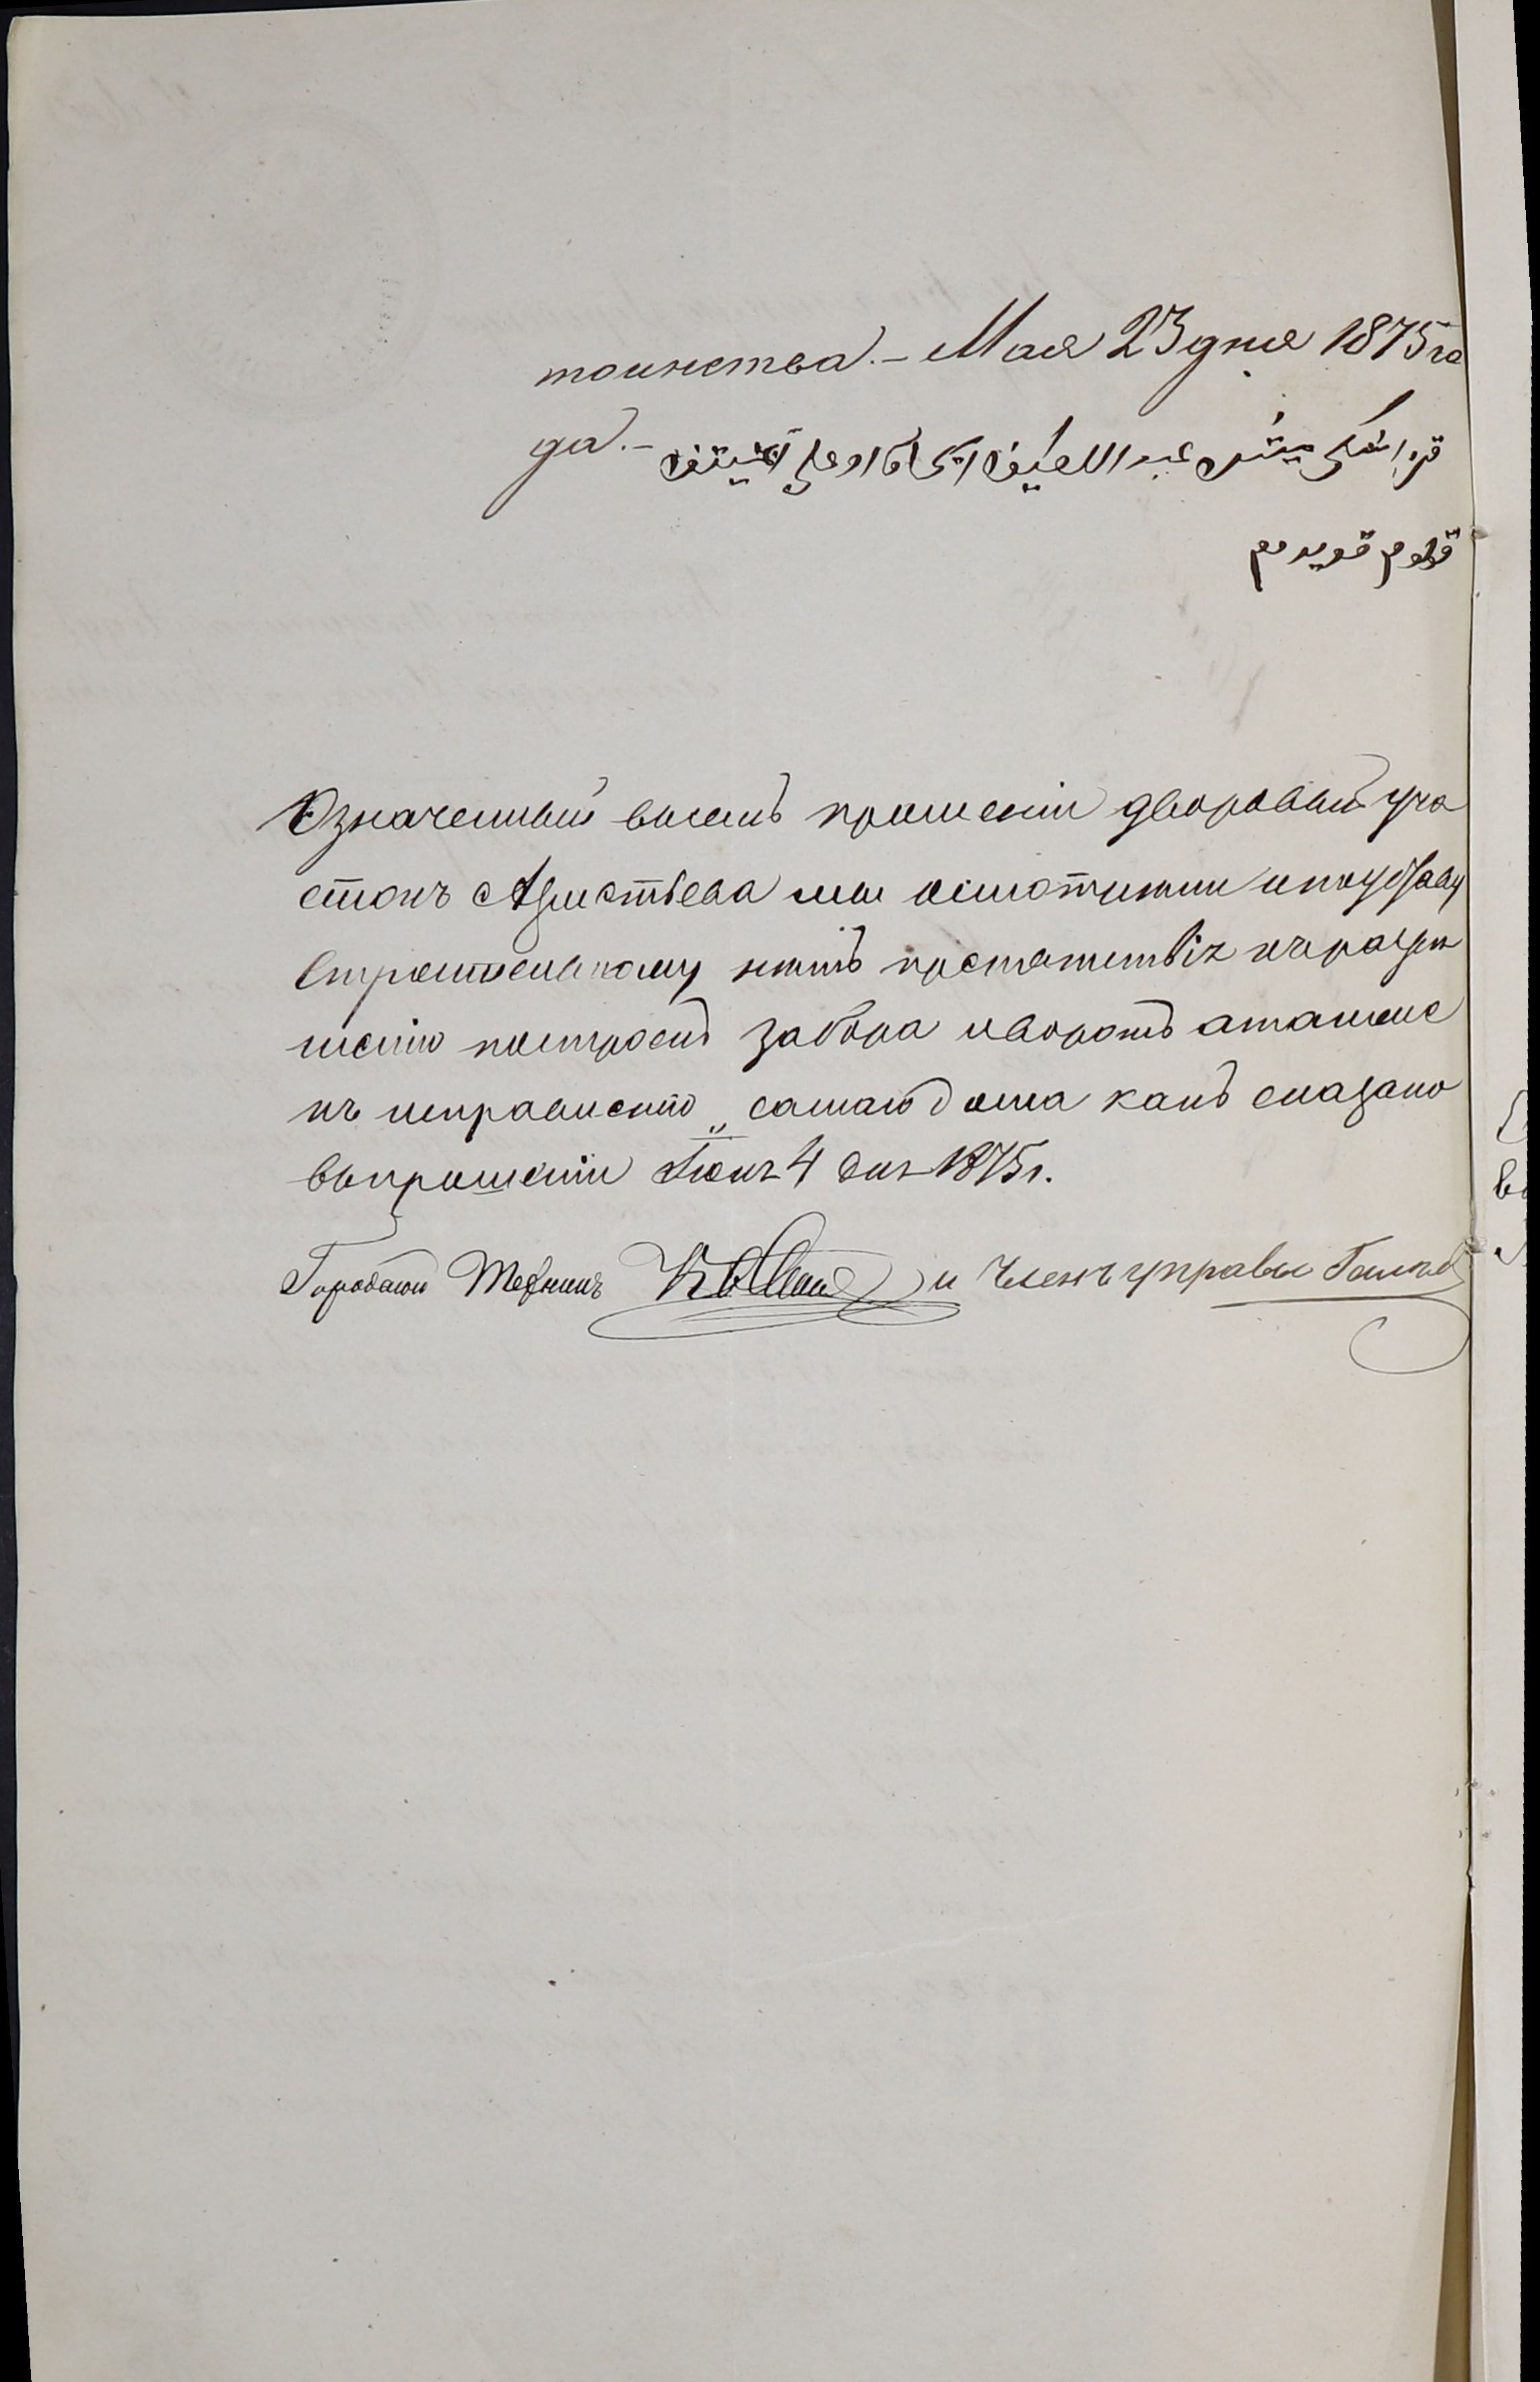 тоинства. – Мая 23 дня 1875 го
да. –
عبد اللطيف
قولوم قويدم
Означенный всемъ прошеніи дворовый уча
стокъ мы осмотрели и по уставу
Строительному нетъ препятствія къ разре
шенію построекъ забора и воротъ а также
къ исправленію „ самаго дома какъ сказано
въ прошеніи Іюня 4 дня 1875 г.
Городской Техникъ и Членъ управы